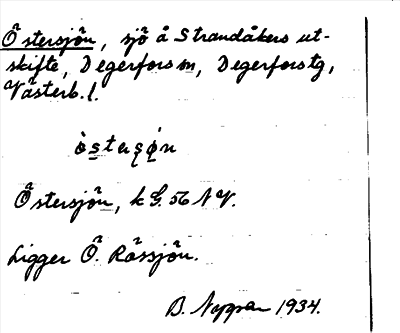 Östersjön, sjö å Strandåkers ut-
skifte, Degerfors sn, Degerfors tg,
Västerb. l.
òstersǫ́n
Östersjön, k G. 56 NV.
Ligger Ö. Rössjön.
B. 1934.